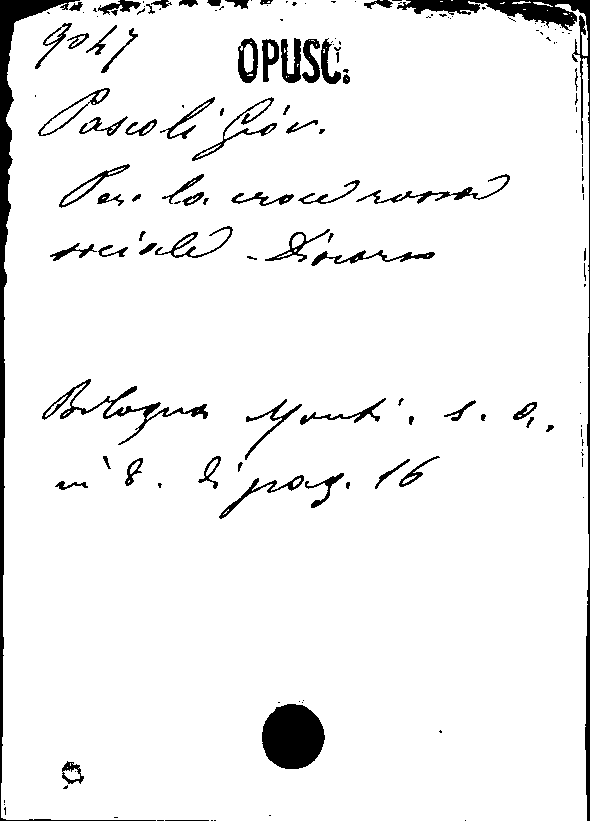 9047
OPUSC.
Pascoli Giov.
Per la croce rossa
sociale - Discorso
Bologna Monti. s. a.
in 8. di pag. 16